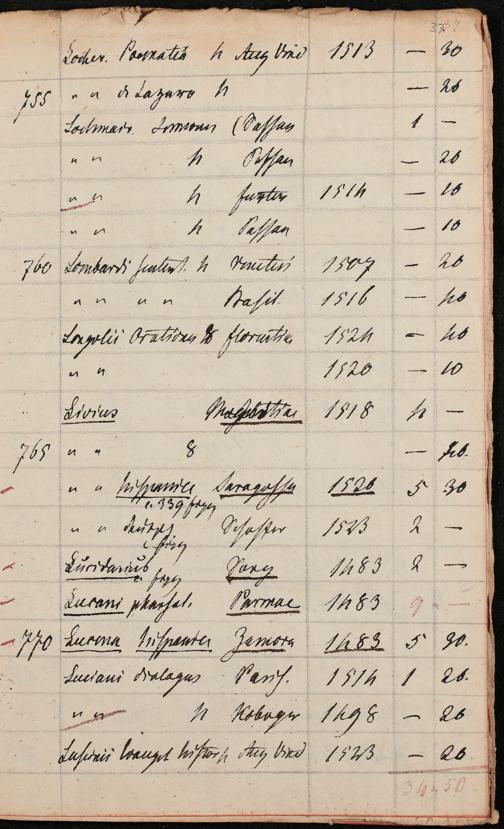 Locher. Poematia 4 Aug Vind 1513 — 30
755 " " de Lazaro 4 — 20
Lochmair. Sermones (Passau 1 —
" " 4 Passau — 20
" " 4 1514 — 10
" " 4 Passau — 10
760 Lombardi sentent. 4 Venetiis 1507 — 20
" " " " Basil. 1516 — 40
Longolii Orationes 8 florentiae 1524 — 40
" " 1520 — 10
Livius Moguntiae 1518 4 —
765 " " 8 — 40.
" " hispanice Saragossa 1520 5 30
c. 339 figg
" " deutsch Schoffer 1523 2 —
c. figg
c. figg 1483 2 —
Lucani pharsal. Parmae 1483 9 —
770 Lucena hispanice Zamora 1483 5 30.
Luciani dialogus Paris. 1514 1 20.
" " 4 Koberger 1498 — 20
Luscinii Evangel histor 4 Aug Vind 1523 — 20
34 50